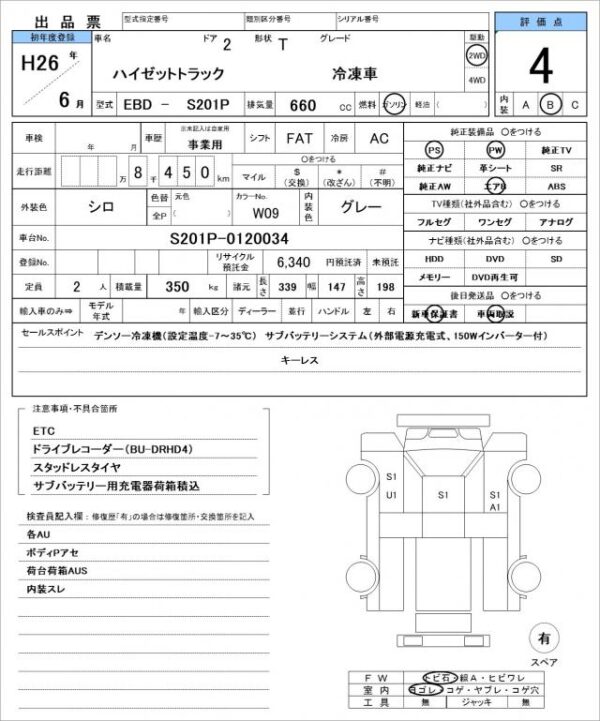 出品票 型式指定番号 類別区分番号 シリアル番号 評価点
初年度登録 車名 ドア 2 形状 T グレード 駆動
H26 年 ハイゼットトラック 冷凍車 2WD 4
4WD
6 月 型式 EBD - S201P 排気量 660 cc 燃料 ガソリン 軽油 ( ) 内装 A B C
車検 年 月 車歴 ※未記入は自家用 事業用 シフト FAT 冷房 AC 純正装備品 〇をつける
PS PW 純正TV
走行距離 万 8 千 4 5 0 km 〇をつける マイル $ (交換) * (改ざん) # (不明) 純正ナビ 革シート SR
純正AW エアB ABS
外装色 シロ 色替 全P 元色 ( ) カラーNo. W09 内装色 グレー TV種類(社外品含む) 〇をつける
フルセグ ワンセグ アナログ
車台No. S201P-0120034 ナビ種類(社外品含む) 〇をつける
登録No. リサイクル預託金 6,340 円預託済 未預託 HDD DVD SD
定員 2 人 積載量 350 kg 諸元 長さ 339 幅 147 高さ 198 メモリー DVD再生可
後日発送品 〇をつける
輸入車のみ⇒ モデル年式 輸入区分 ディーラー 並行 ハンドル 左 右 新車保証書 車両取説
セールスポイント デンソー冷凍機(設定温度-7~35℃) サブバッテリーシステム(外部電源充電式、150Wインバーター付)
キーレス
注意事項・不具合箇所
ETC
ドライブレコーダー(BU-DRHD4)
スタッドレスタイヤ
サブバッテリー用充電器荷箱積込
検査員記入欄：修復歴「有」の場合は修復箇所・交換箇所を記入
各AU
ボディPアセ
荷台荷箱AUS
内装スレ
S1 S1 S1
U1 A1
有
スペア
FW トビ石・線A・ヒビワレ
室内 ヨゴレ・コゲ・ヤブレ・コゲ穴
工具 無 ジャッキ 無